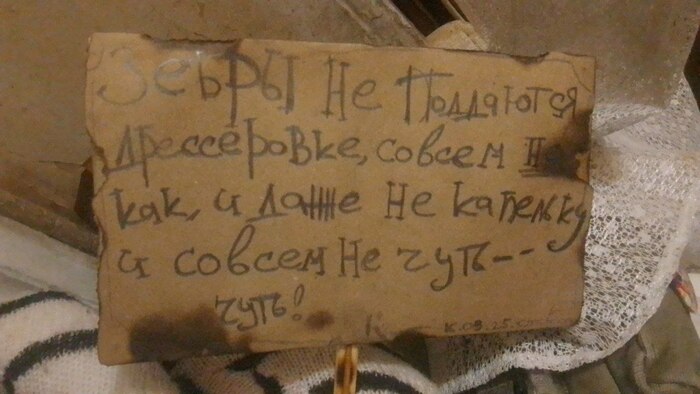 Зебры не поддаются
дрессеровке, совсем
как, и даже не капельку
и совсем не чуть--
чуть!